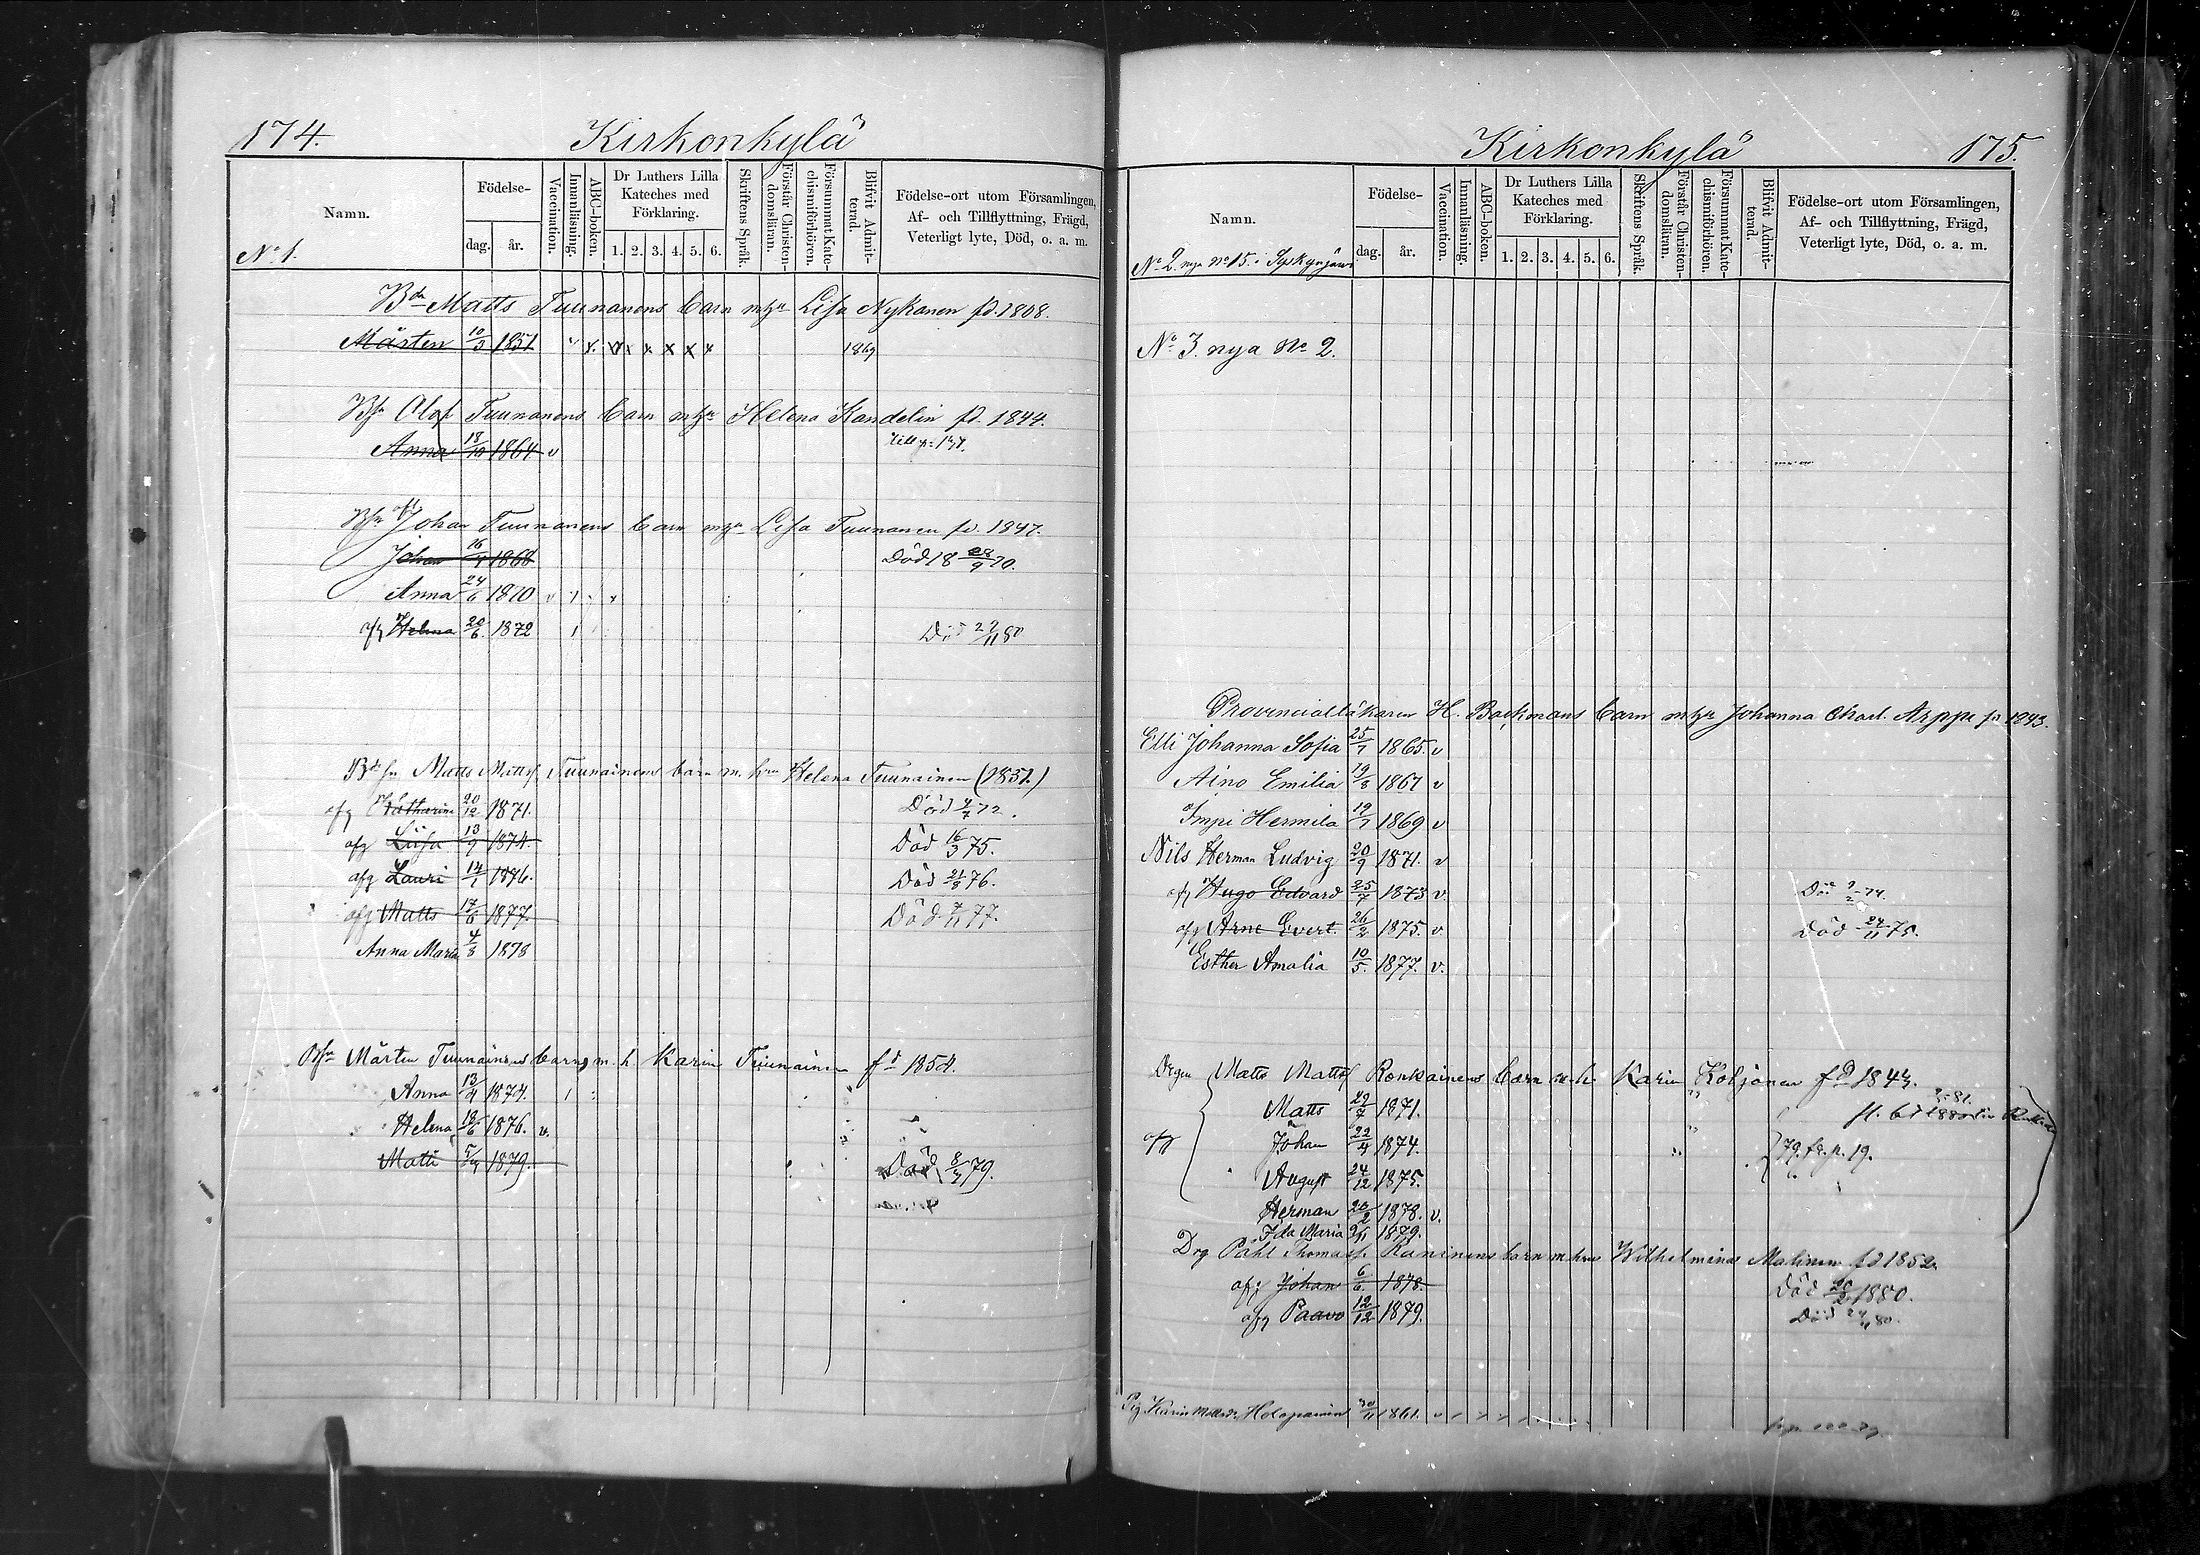 174.
Kirkonkylä
Namn.
Födelse-
dag.
år.
Vaccination.
Innanläsning.
ABC-boken.
Dr Luthers Lilla Kateches med Förklaring.
1. 2. 3. 4. 5. 6.
Skriftens Språk.
Förstår Christendomsläran.
Försummat Katechismiförhören.
Blifvit Admitterad.
Födelse-ort utom Församlingen, Af- och Tillflyttning, Frägd, Veterligt lyte, Död, o. a. m.
No 1.
Matts Tuunanens barn m hu Lisa Nykänen fd. 1808.
Mårten 10/3 1851 x x x x x x 1869
Olof Tuunanens barn m hu Helena Kandelin fd. 1844.
Anna 18/10 1864 v
Johan Tuunanens barn m hu Lisa Tuunanen fd. 1847.
Johan 1868 Död 18 28/9 70.
Anna 24/6 1870 v
afg Helena 20/6 1872 Död 80
Matts Matts Tuunainens barn m. hu Helena Tuunainen (1851.)
afg Katharina 20/12 1871. Död 72.
afg Liisa 13/9 1874. Död 16/3 75.
afg Lauri 14/1 1876. Död 21/3 76.
afg Matts 17/6 1877. Död 7/11 77.
Anna Maria 4/3 1878
Mårten Tuunainens barn m. h. Karin Tuunainen fd 1854.
Anna 13/4 1874.
Helena 18/6 1876. v.
Matti 1879. Död 8/7 79.
Kirkonkylä
175.
Namn.
Födelse-
dag.
år.
Vaccination.
Innanläsning.
ABC-boken.
Dr Luthers Lilla Kateches med Förklaring.
1. 2. 3. 4. 5. 6.
Skriftens Språk.
Förstår Christendomsläran.
Försummat Katechismiförhören.
Blifvit Admitterad.
Födelse-ort utom Församlingen, Af- och Tillflyttning, Frägd, Veterligt lyte, Död, o. a. m.
No 2. nya No 15. i Syskyjärvi
No 3. nya No 2.
Provincialläkaren H. Backmans barn m hu Johanna Charl. Arppe fd 1843.
Elli Johanna Sofia 25/7 1865. v
Aino Emilia 19/8 1867 v
Impi Hermila 19/7 1869 v
Nils Herman Ludvig 20/9 1871. v
afg Hugo Edvard 25/7 1873 v. Död 74.
afg Arne Evert. 26/2 1875. v Död 24/11 75.
Esther Amalia 10/5. 1877. v.
Matts Matts Ronkainens barn m. h. Karin Koljonen fd 1843.
Matts 29/7 1871.
afg Johan 22/4 1874.
79. fr. p. 19.
August 24/12 1875.
Herman 20/2 1878. v.
Ida Maria 9/11 1879.
Drg Påhl Thomass. Kaninens barn m. hus Wilhelmina Malinen fd 1852.
afg Johan 6/6. 1878. Död 1880.
afg Paavo 12/12 1879. Död 80.
Pig. Karin Holopainen 1861. v